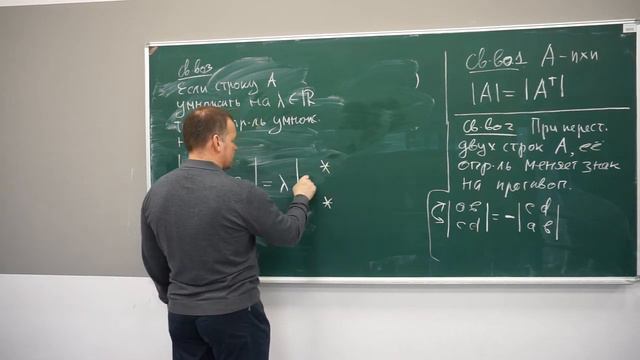 св-во3
Если строку A
умножить на λ∈ℝ
умнож.
| = λ |
*
*
св-во1 A - n×n
|A| = |Aᵀ|
св-во2 При перест.
двух строк A, её
опр-ль меняет знак
на противоп.
|a b| = -|c d|
|c d| |a b|